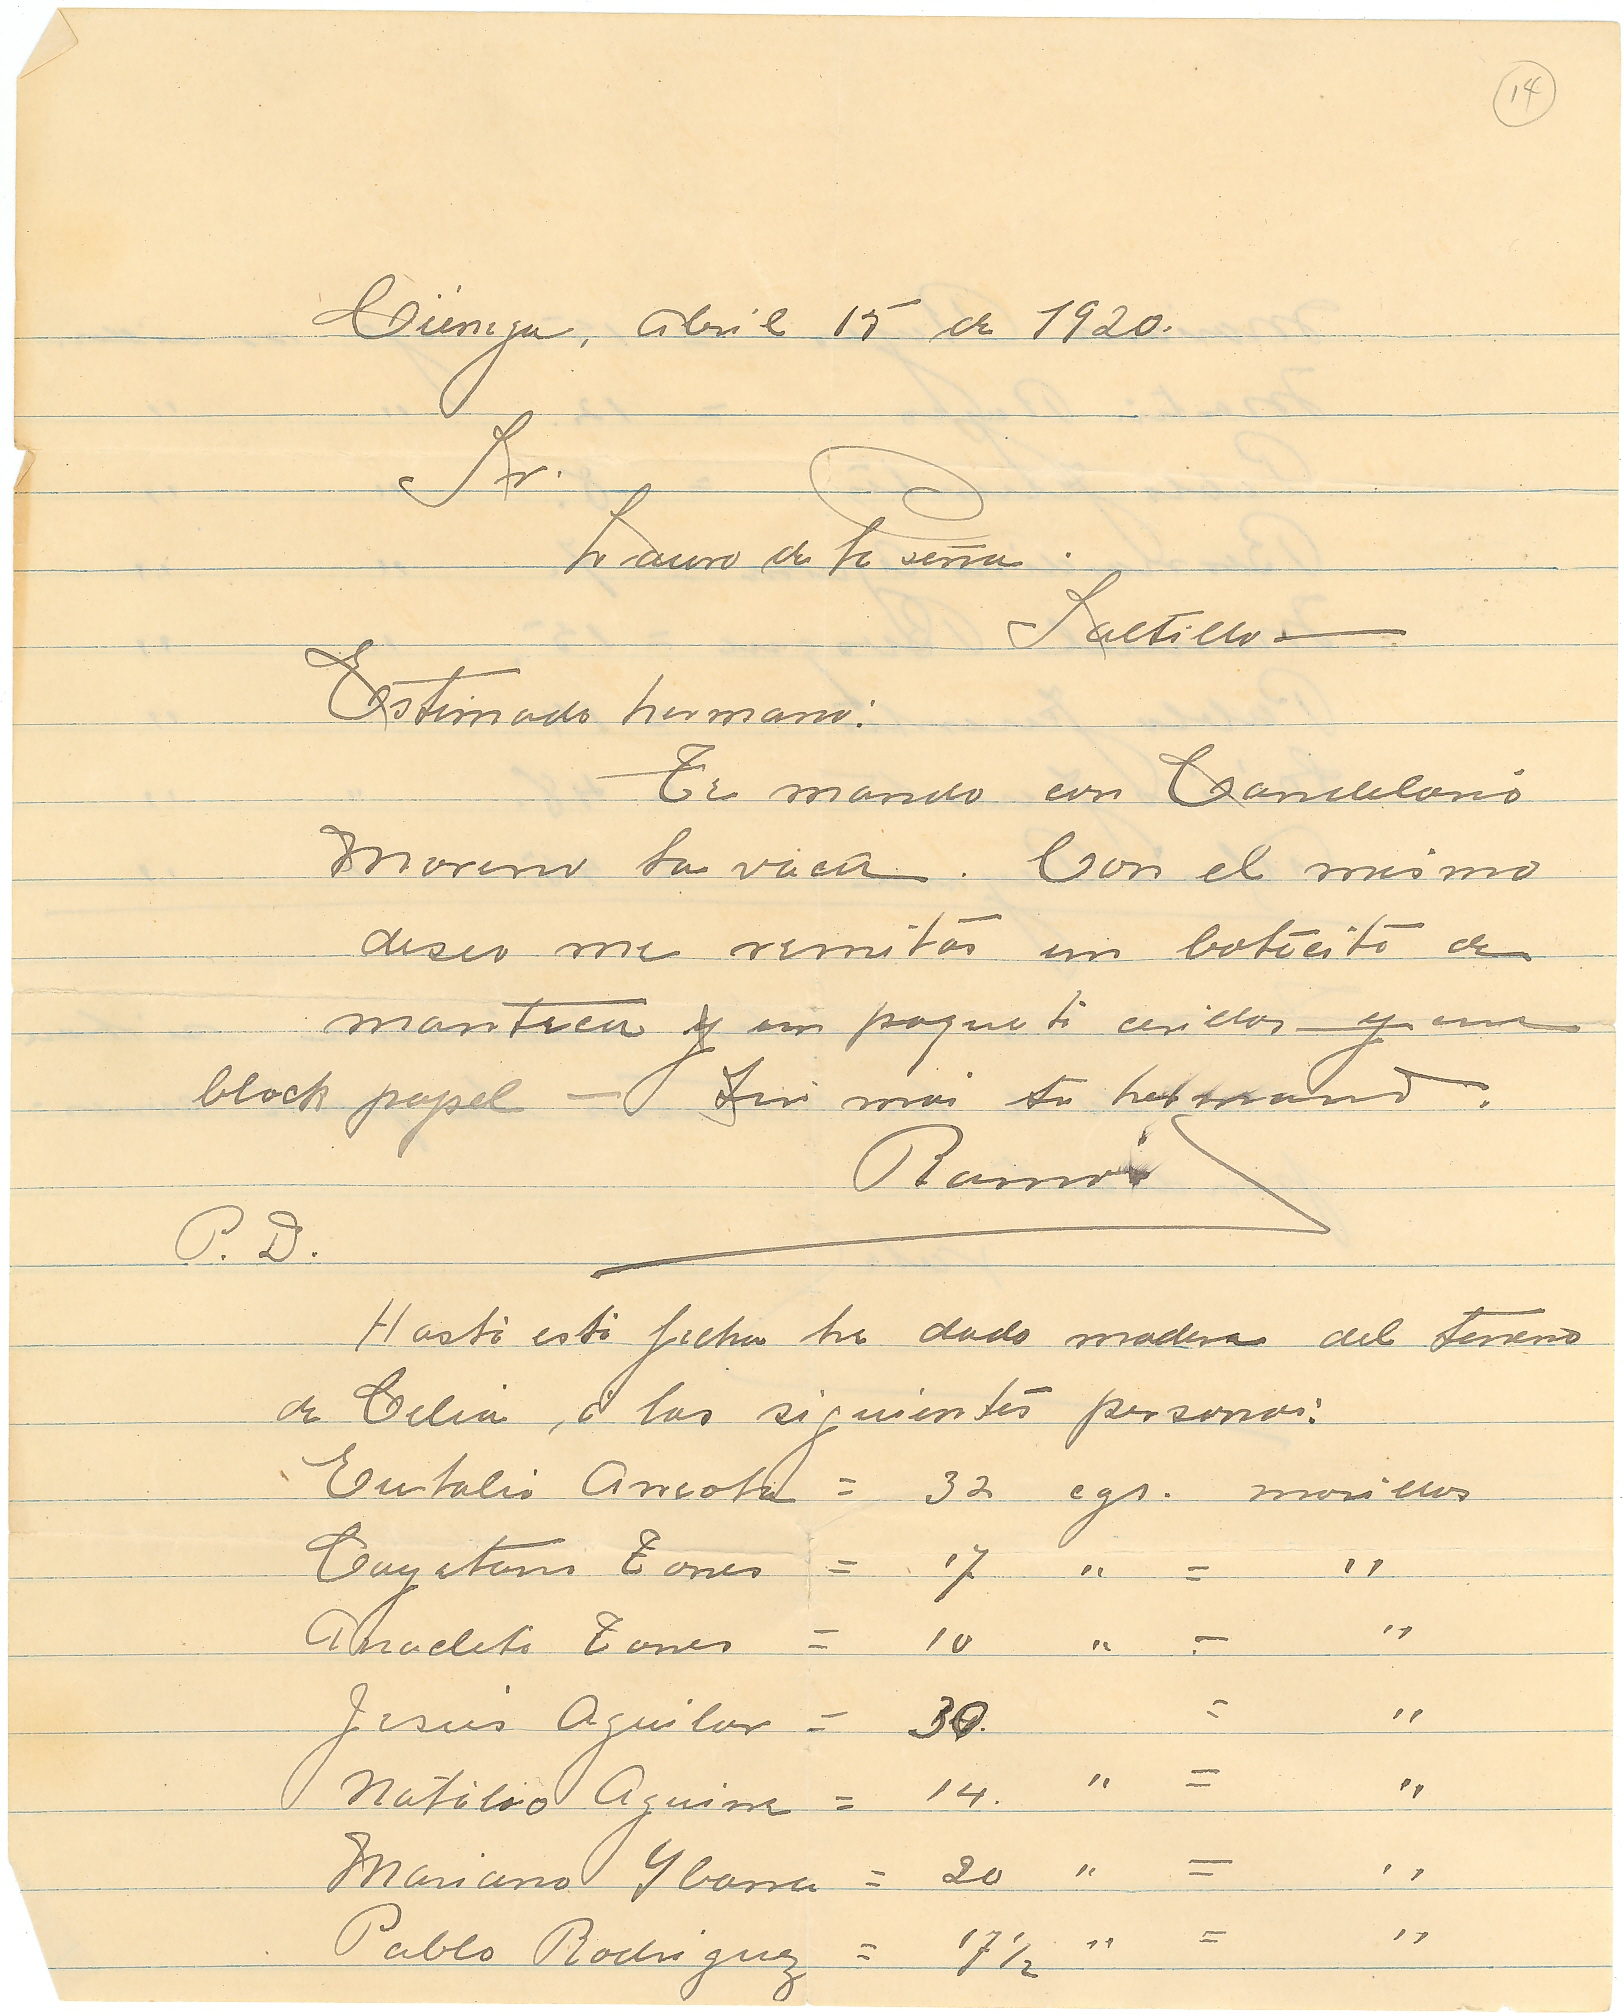 14
Ciénega, Abril 15 de 1920.
Sr.
Lauro de la Peña.
Saltillo
Estimado hermano:
Te mando con Candelario
Moreno la vaca. Con el mismo
deseo me remitas un botecito de
manteca y un paquete cerillos y un
block papel — Sin más tu hermano.
Ramón
P. D.
Hasta esta fecha he dado madera del terreno
de Celia, á las siguientes personas:
Eutalio Arreola = 32 cgs. morillos
Cayetano Torres = 17 " = "
Anacleto Torres = 10 " = "
Jesús Aguilar = 30. = "
Natalio Aguirre = 14. " = "
Mariano Ybarra = 20 " = "
Pablo Rodriguez = 17½ " = "